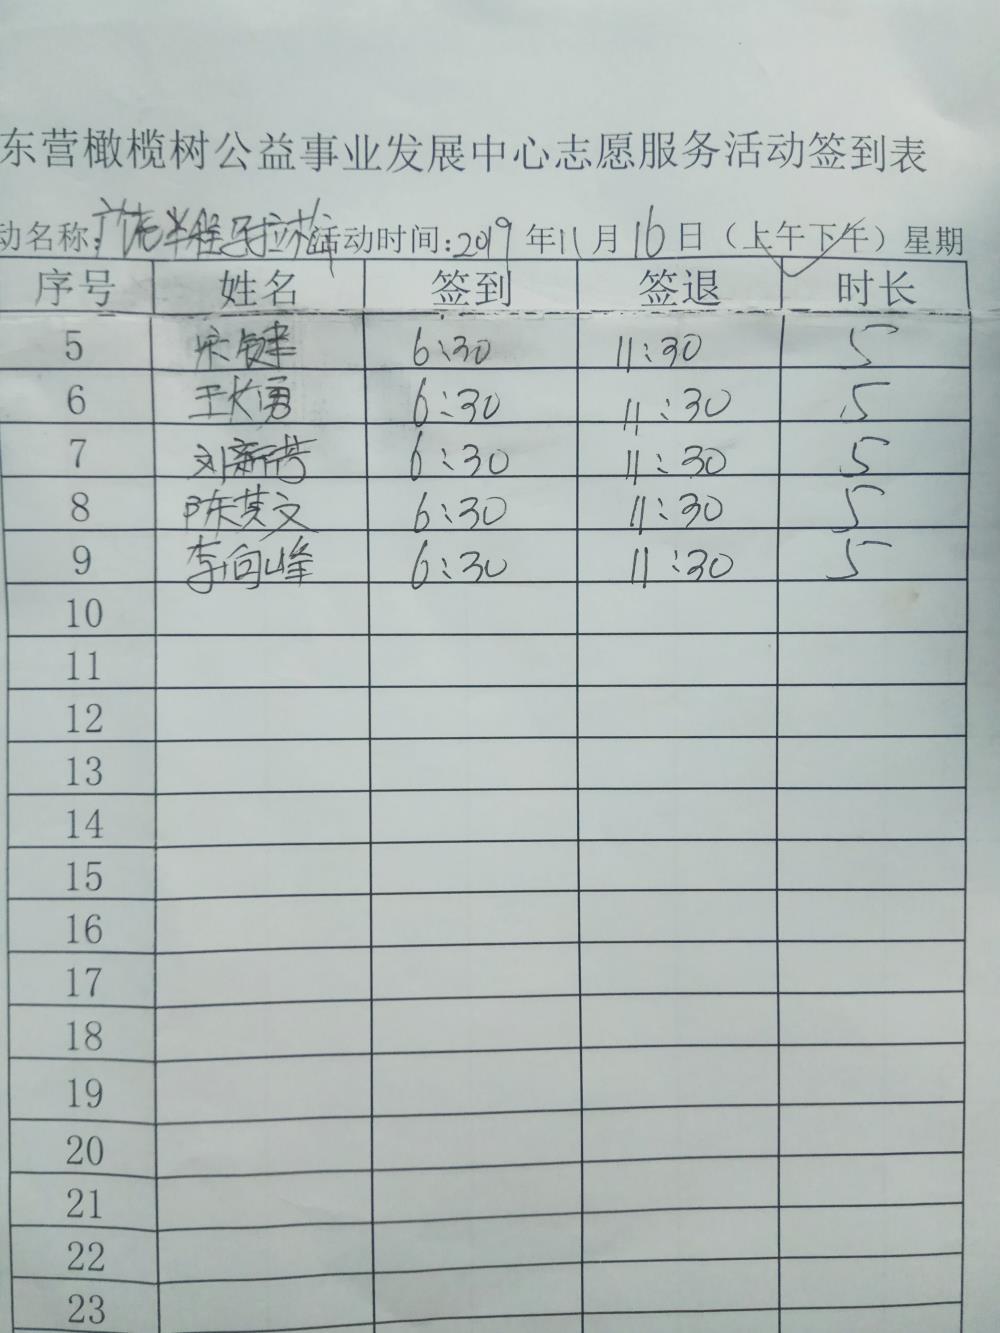 东营橄榄树公益事业发展中心志愿服务活动签到表
动名称:广饶半程马拉松活动时间:2019年11月16日(上午下午)星期
序号 姓名 签到 签退 时长
5 宋键 6:30 11:30 5
6 王 勇 6:30 11:30 5
7 刘新芳 6:30 11:30 5
8 陈其文 6:30 11:30 5
9 李向峰 6:30 11:30 5
10
11
12
13
14
15
16
17
18
19
20
21
22
23